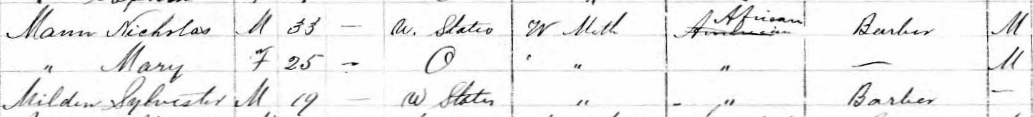 Mann Nicholas M 33 — U. States W Meth African Barber M
" Mary F 25 — O " " — M
Milden Sylvester M 19 — U States " " Barber —